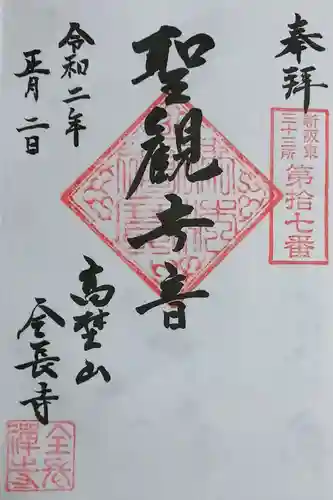 奉拝
新坂東
三十三所
第拾七番
聖観世音
令和二年
正月二日
高埜山
全長寺
全長
禅寺